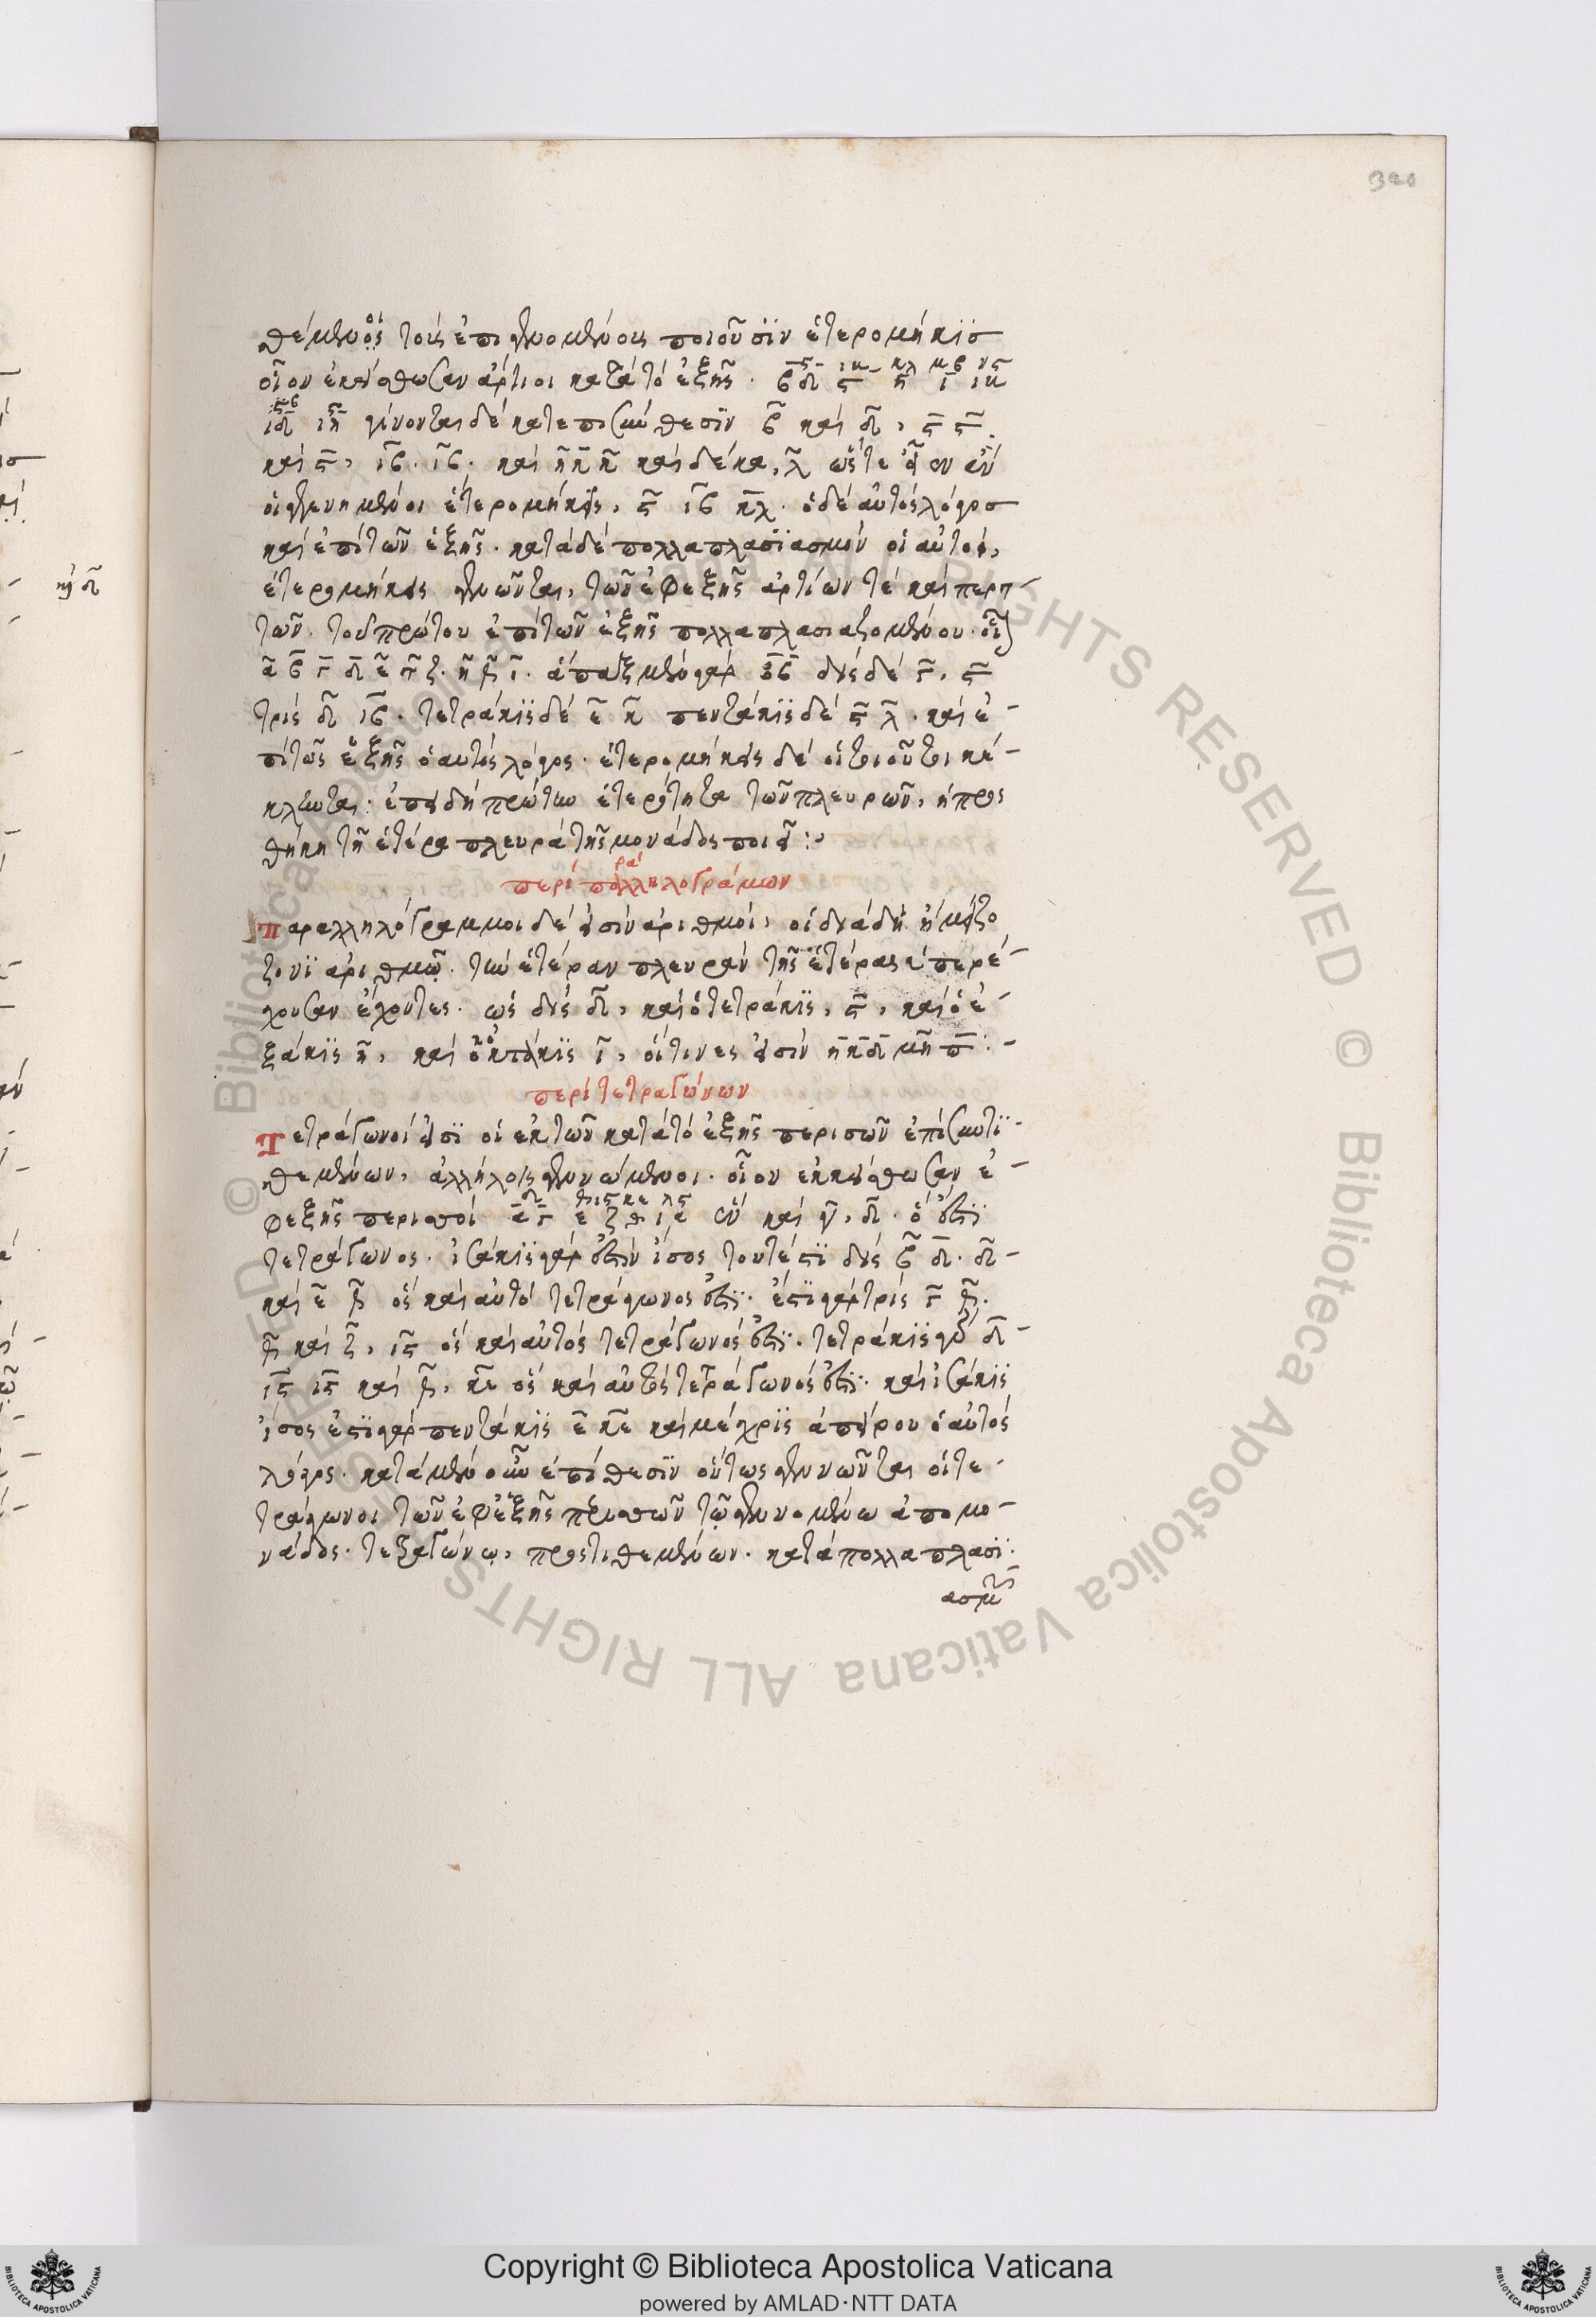 320
θέμενος τοῖς ἐπιγενομένοις ποιοῦσιν ἑτερομήκεισ
οἷον ἐκκείσθωσαν ἄρτιοι κατὰ τὸ ἑξῆς.
γίνονται δὲ κατ ἐπισύνθεσϊν β καὶ δ, ϛ ϛ
καὶ ϛ, ιβ. ιβ. καὶ η κ κ καὶ δέκα, λ ὥστε
οἱ γεννημένοι ἑτερομήκεις, ϛ ιβ κ λ. ὁ δὲ αὐτὸς λόγοσ
καὶ ἐπὶ τῶν ἑξῆς. κατὰ δὲ πολλαπλασϊασμὸν οἱ αὐτοὶ,
ἑτερομήκεις γενῶνται, τῶν ἐφεξῆς ἀρτίων τὲ καὶ περιτ-
τῶν. τοῦ πρώτου ἐπὶ τῶν ἑξῆς πολλαπλασιαζομένου.
α β γ δ ε ϛ ζ. η θ ι. ἅπαξ μὲν γὰρ β β δὶς δὲ γ, ϛ
τρὶς δ ιβ. τετράκϊς δὲ ε κ πεντάκϊς δὲ ϛ λ. καὶ ἐ-
πὶ τῶν ἑξῆς ὁ αυτὸς λόγος. ἑτερομήκεις δὲ οἱ τοιοῦτοι κέ-
κληνται. ἐπειδὴ πρώτην ἑτερότητα τῶν πλευρῶν, ἡ προς
θήκη τῇ ἑτέρα πλευρὰ τῆς μονάδος ποιεῖ:
περὶ παραλληλογράμων
Παραλληλόγραμμοι δέ εἰσὶν ἀριθμοὶ, οἱ δυάδι ἢ μείζο
ζονϊ ἀριθμῷ. τὴν ἑτέραν πλευρὰν τῆς ἑτέρας ὑπερέ-
χουσαν ἔχοντες. ὡς δὶς δ, καὶ ὁ τετράκϊς, ϛ, καὶ ὁ ἑ-
ξάκϊς η, καὶ ὁ ὀκτάκϊς ι, οἵτινες εἰσὶν η κδ μη π:-
περὶ τετραγώνων
Τετράγωνοί εἰσϊ οἱ ἐκ τῶν κατὰ τὸ ἑξῆς περισῶν ἐπισυντϊ-
θεμένων, ἀλλήλοις γεννώμενοι. οἷον ἐκκείσθωσαν ἐ-
φεξῆς περισσοὶ α γ ε ζ θ ια καὶ γ, δ. ὅ ἐστϊ
τετράγωνος. ἰσάκϊς γὰρ ἐστὶν ἴσος τουτέστϊ δὶς β δ. δ-
καὶ ε θ ὃς καὶ αὐτὸ τετράγωνος ἐστϊ. ἔστϊ γὰρ τρὶς γ θ.
θ καὶ ζ, ιϛ ὃς καὶ αὐτὸς τετράγωνός ἐστϊ. τετράκϊς γὰρ δ-
ιϛ ιϛ καὶ θ, κε ὃς καὶ αὐτὸς τετράγωνός ἐστϊ. καὶ ἰσάκϊς
ἴσος ἔστϊ γὰρ πεντάκϊς ε κε καὶ μέχρϊς ἀπείρου ὁ αὐτὸς
λόγος. κατὰ μὲν οὖν ἐπίθεσϊν οὕτως γεννῶνται οἱ τε-
τράγωνοι τῶν ἐφεξῆς περισσῶν τῷ γεννομένω ἀπο μο-
νάδος. τετραγώνῳ, προστιθεμένων. κατὰ πολλαπλασϊ.
ασμὸν
Copyright © Biblioteca Apostolica Vaticana
powered by AMLAD·NTT DATA